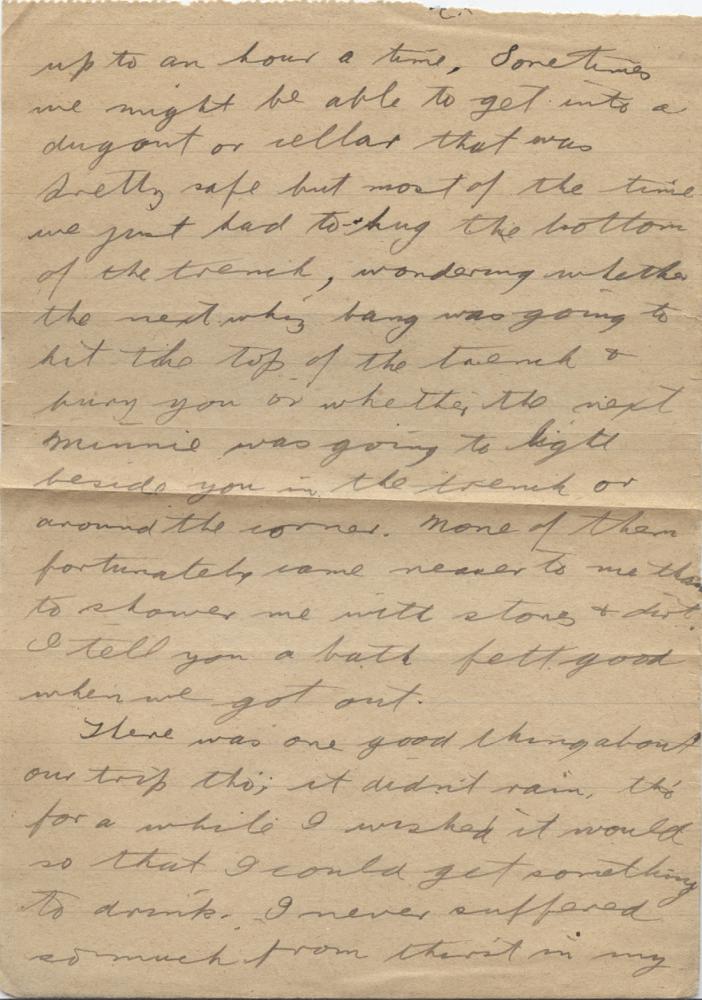 up to an hour a time, Sometimes
we might be able to get into a
dugout or cellar that was
pretty safe but most of the time
we just had to hug the bottom
of the trench, wondering whether
the next whiz bang was going to
hit the top of the trench &
bury you or whether the next
Minnie was going to light
beside you in the trench or
around the corner. None of them
fortunately came nearer to me than
to shower me with stones & dirt.
I tell you a bath felt good
when we got out.
There was one good thing about
our trip tho; it didn't rain, tho
for a while I wished it would
so that I could get something
to drink. I never suffered
so much from thirst in my